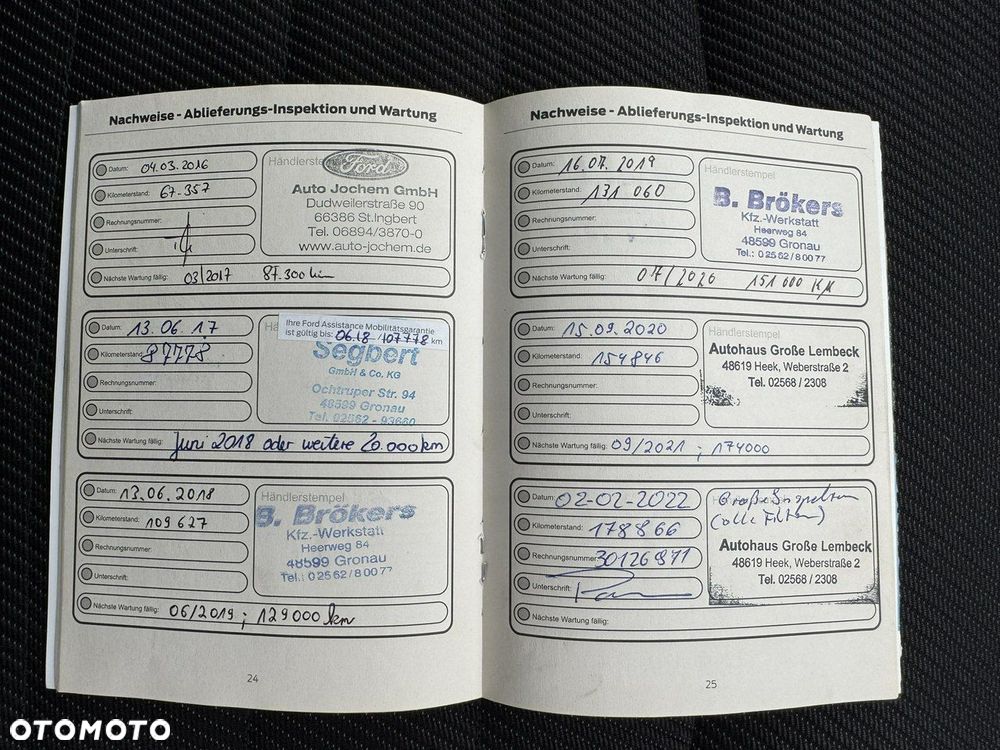 Nachweise - Ablieferungs-Inspektion und Wartung
Datum: 04.03.2016
Kilometerstand: 67.357
Rechnungsnummer:
Unterschrift:
Nächste Wartung fällig: 03/2017 87.300 km
Händlerstempel
Ford
Auto Jochem GmbH
Dudweilerstraße 90
66386 St.Ingbert
Tel. 06894/3870-0
www.auto-jochem.de
Datum: 13.06.17
Kilometerstand: 87778
Rechnungsnummer:
Unterschrift:
Nächste Wartung fällig: Juni 2018 oder weitere 20.000km
Ihre Ford Assistance Mobilitätsgarantie
ist gültig bis: 06.18 /107778 km
Segbert
GmbH & Co. KG
Ochtruper Str. 94
48599 Gronau
Tel. 02562 - 93660
Datum: 13.06.2018
Kilometerstand: 109627
Rechnungsnummer:
Unterschrift:
Nächste Wartung fällig: 06/2019 ; 129000 km
Händlerstempel
B. Brökers
Kfz.-Werkstatt
Heerweg 84
48599 Gronau
Tel.: 02562/80077
24
Nachweise - Ablieferungs-Inspektion und Wartung
Datum: 16.07.2019
Kilometerstand: 131 060
Rechnungsnummer:
Unterschrift:
Nächste Wartung fällig: 07/2020 151 000 KM
Händlerstempel
B. Brökers
Kfz.-Werkstatt
Heerweg 84
48599 Gronau
Tel.: 02562/80077
Datum: 15.09.2020
Kilometerstand: 154846
Rechnungsnummer:
Unterschrift:
Nächste Wartung fällig: 09/2021 ; 174000
Händlerstempel
Autohaus Große Lembeck
48619 Heek, Weberstraße 2
Tel. 02568 / 2308
Datum: 02-02-2022
Kilometerstand: 178866
Rechnungsnummer: 30126971
Unterschrift:
Nächste Wartung fällig:
Große Inspektion
(alle Filter)
Autohaus Große Lembeck
48619 Heek, Weberstraße 2
Tel. 02568 / 2308
25
OTOMOTO